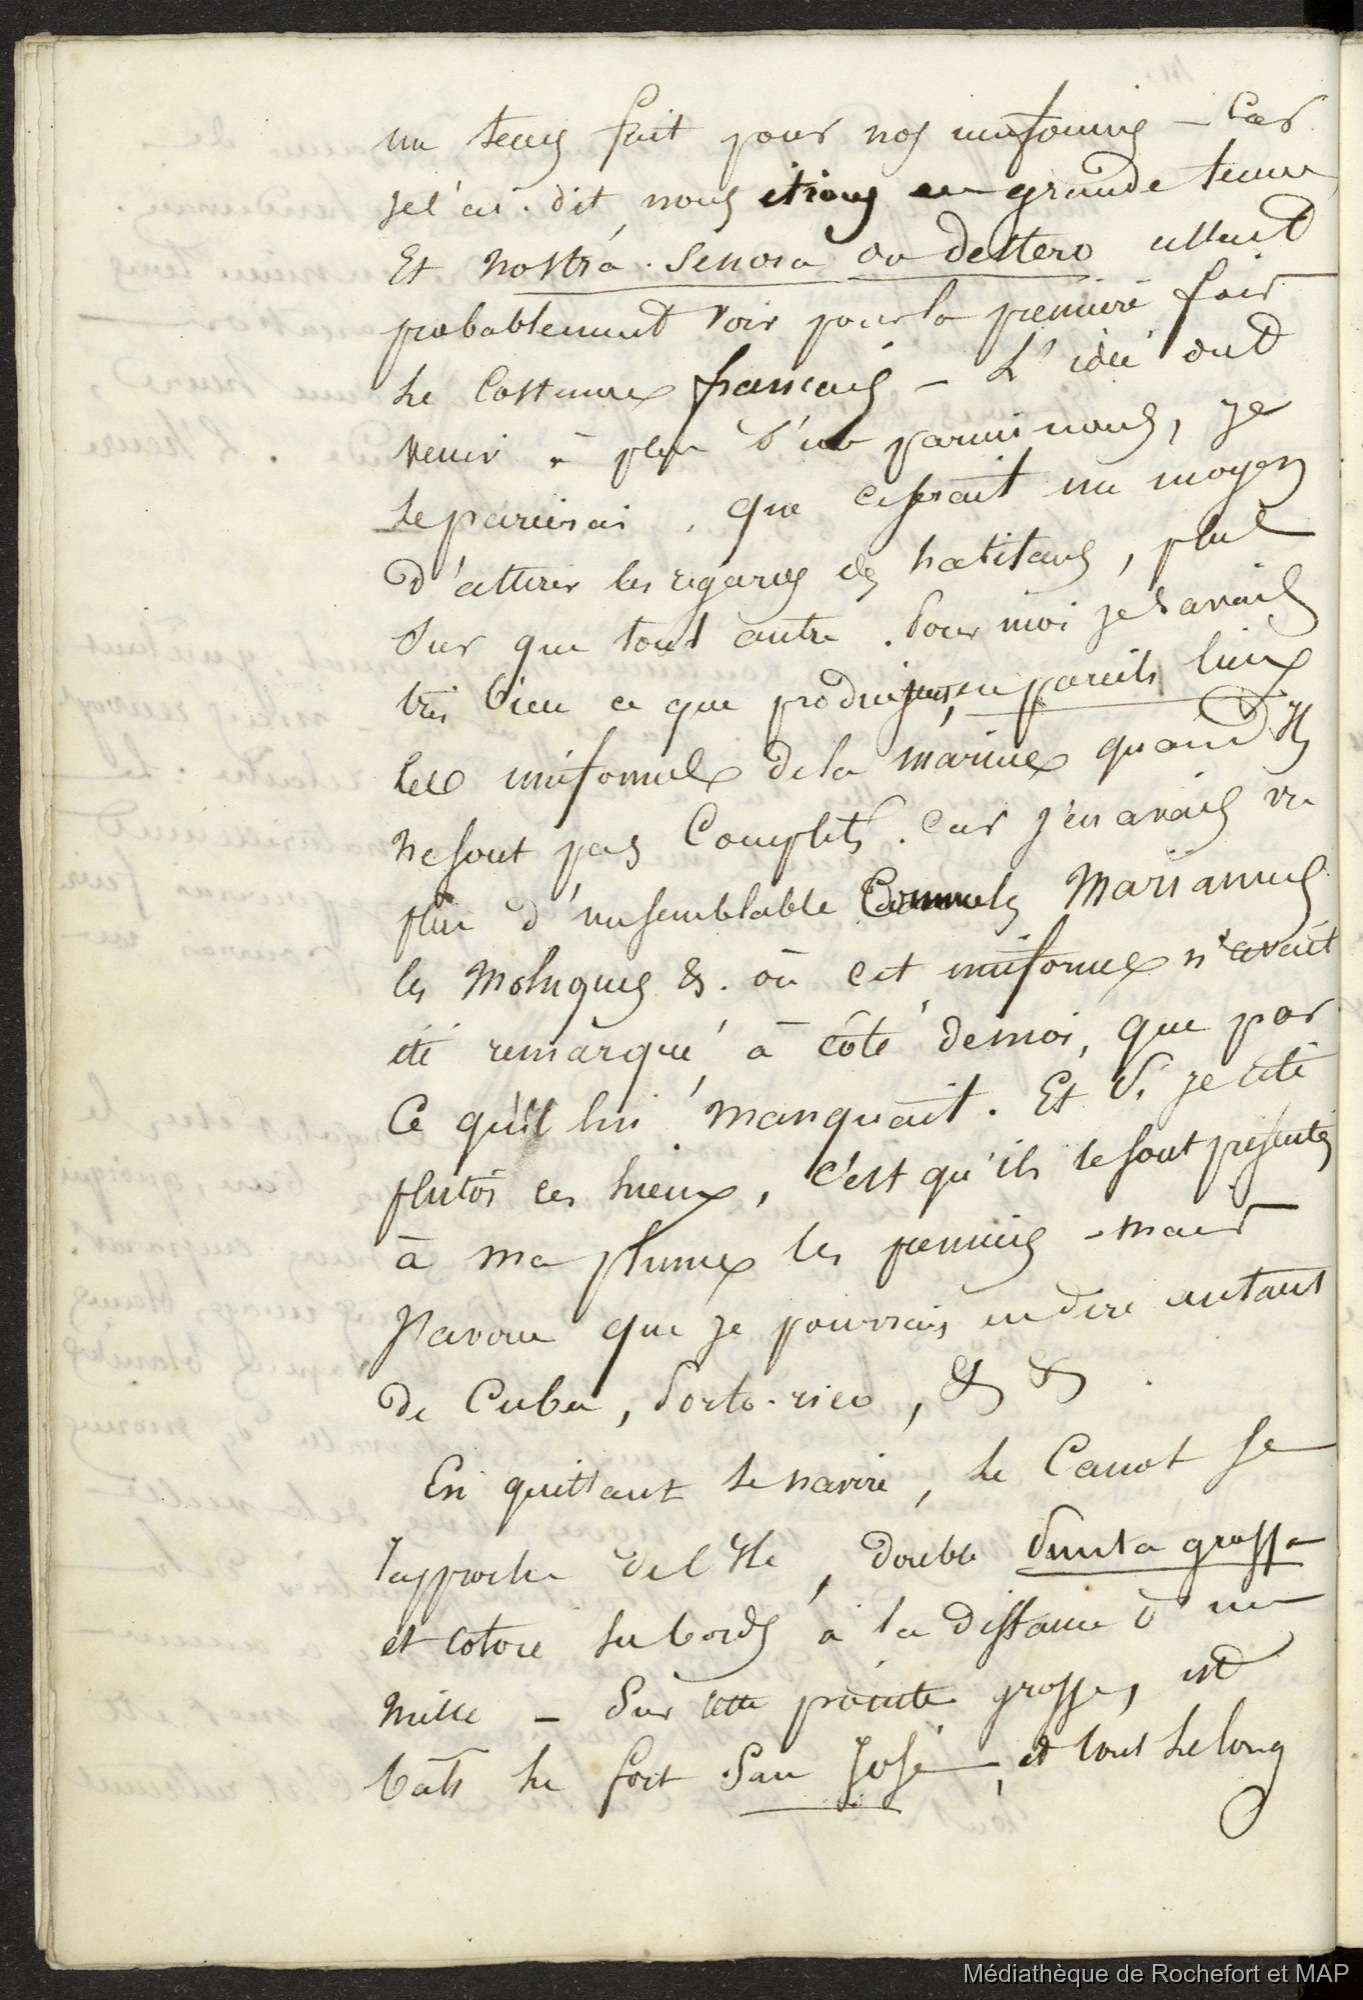 un tems fait pour nos uniformes – Car
je l'ai dit, nous étions en grande tenue,
Et nostra Senora do destero allait
probablement voir pour la première fois
le Costume français – L'idée dut
venir à plus d'un parmi nous, je
le parierais, que ce serait un moyen
d'attirer les regards des habitans, plus
Sur que tout autre. Pour moi je savais
très bien ce que produisent, en pareils lieux
les uniformes de la marine quand ils
ne sont pas Complets. Car j'en avais vu
plus d'un semblable Mariannes
les Moluques &. où cet uniforme n'avait
été remarqué, à côté de moi, que par
Ce qu'il lui manquait. Et Si je cite
plutôt ces lieux, c'est qu'ils se sont présentés
à ma plume les premiers – mais
J'avoue que je pourrais en dire autant
de Cuba, Porto-rico, & &
En quittant le navire, le Canot se
rapproche de l'Ile, double Punta grossa
et cotoie ses bords à la distance d'un
mille – Sur cette pointe grosse, est
bâti le fort San José, et tout le long
Médiathèque de Rochefort et MAP